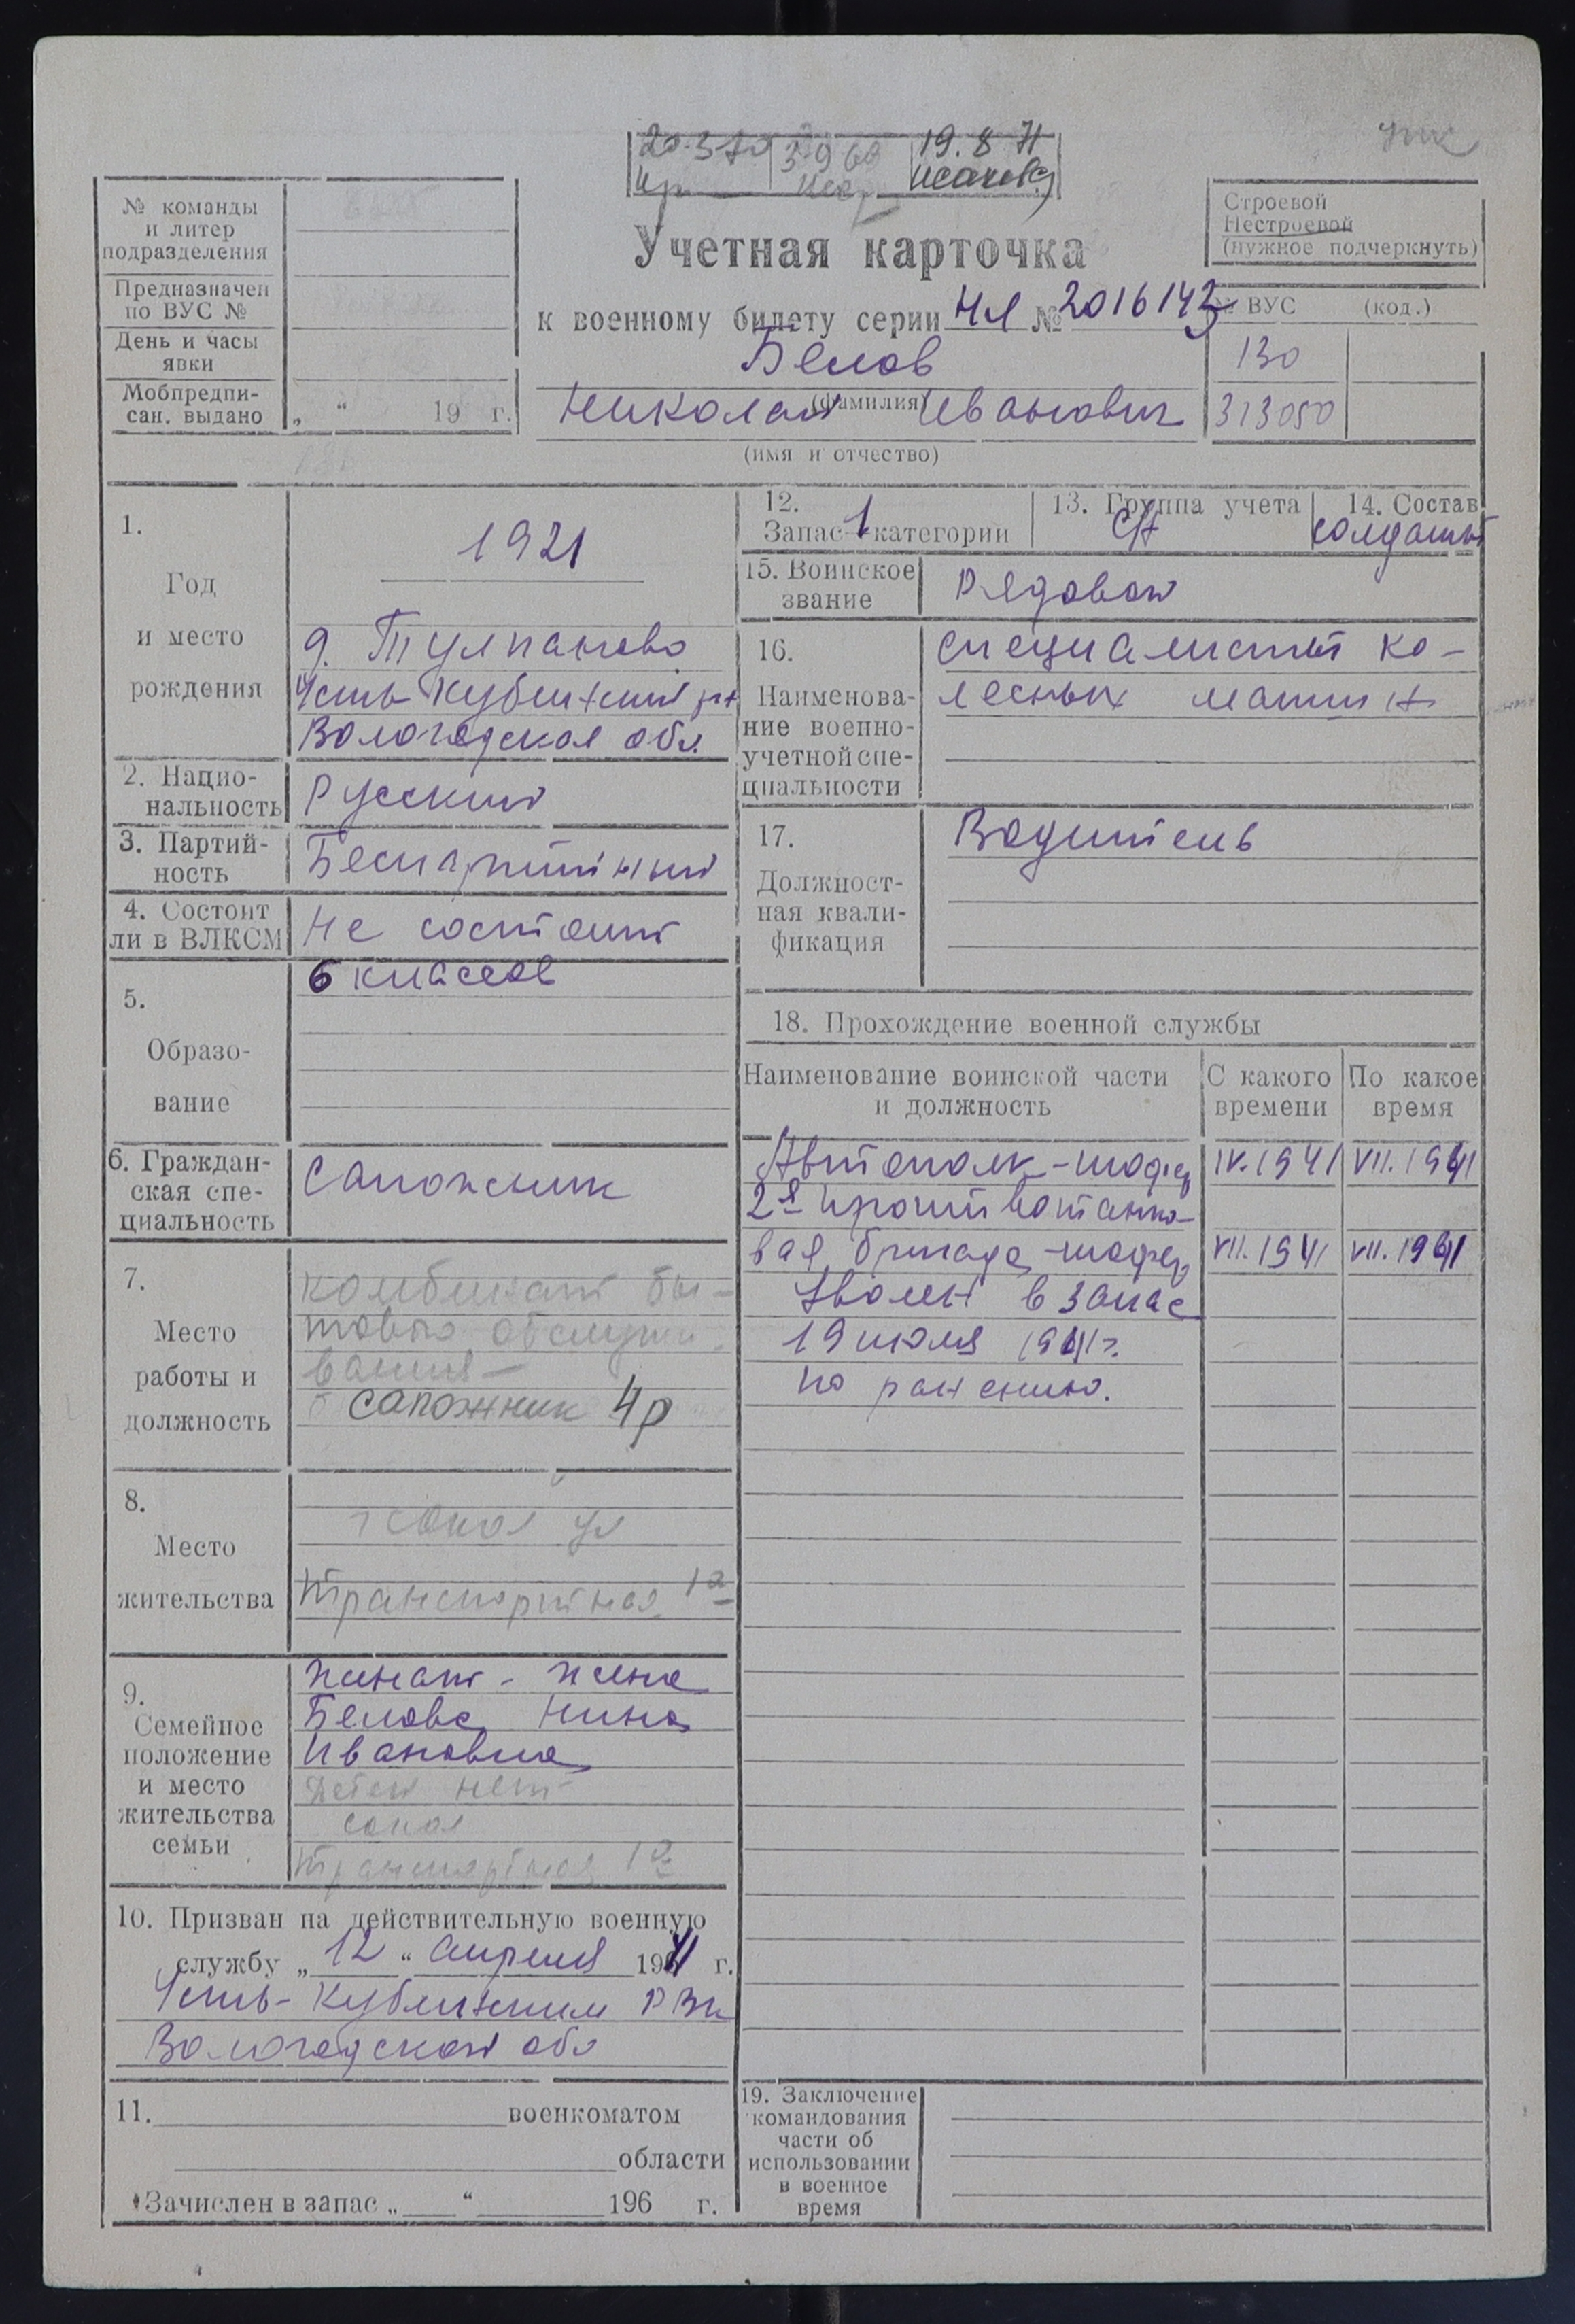 20.3.70 3.9.69 19.8.71
Исакова
№ команды
и литер
подразделения
Предназначен
по ВУС №
День и часы
явки
Мобпредпи-
сан. выдано
„ “ 19 г.
Учетная карточка
к военному билету серии НЯ № 2016143
Белов
(фамилия)
Николай Иванович
(имя и отчество)
Строевой
Нестроевой
(нужное подчеркнуть)
№ ВУС (код.)
130
313050
1.
Год
и место
рождения
1921
д. Тулпаново
Усть-Кубинский р-н
Вологодская обл.
2. Нацио-
нальность
Русский
3. Партий-
ность
Беспартийный
4. Состоит
ли в ВЛКСМ
Не состоит
5.
Образо-
вание
6 классов
6. Граждан-
ская спе-
циальность
Сапожник
7.
Место
работы и
должность
комбинат бы-
тового обслужи-
вания -
сапожник 4р
8.
Место
жительства
г Сокол ул
Транспортная 1а
9.
Семейное
положение
и место
жительства
семьи
Женат - жена
Белова Нина
Ивановна
Детей нет
Сокол
Транспортная 1а
10. Призван на действительную военную
службу „ 12 “ апреля 1941 г.
Усть-Кубинским РВК
Вологодской обл
11. военкоматом
области
Зачислен в запас „ “ 196 г.
12.
Запас 1 категории
13. Группа учета
СА
14. Состав
солдаты
15. Воинское
звание
Рядовой
16.
Наименова-
ние военно-
учетной спе-
циальности
специалисты ко-
лесных машин
17.
Должност-
ная квали-
фикация
Водитель
18. Прохождение военной службы
Наименование воинской части
и должность
С какого
времени
По какое
время
Автополк - шофер IV.1941 VII.1941
2я противотанко-
вая бригада - шофер VII.1941 VII.1941
Уволен в запас
19 июля 1941г.
по ранению.
19. Заключение
командования
части об
использовании
в военное
время